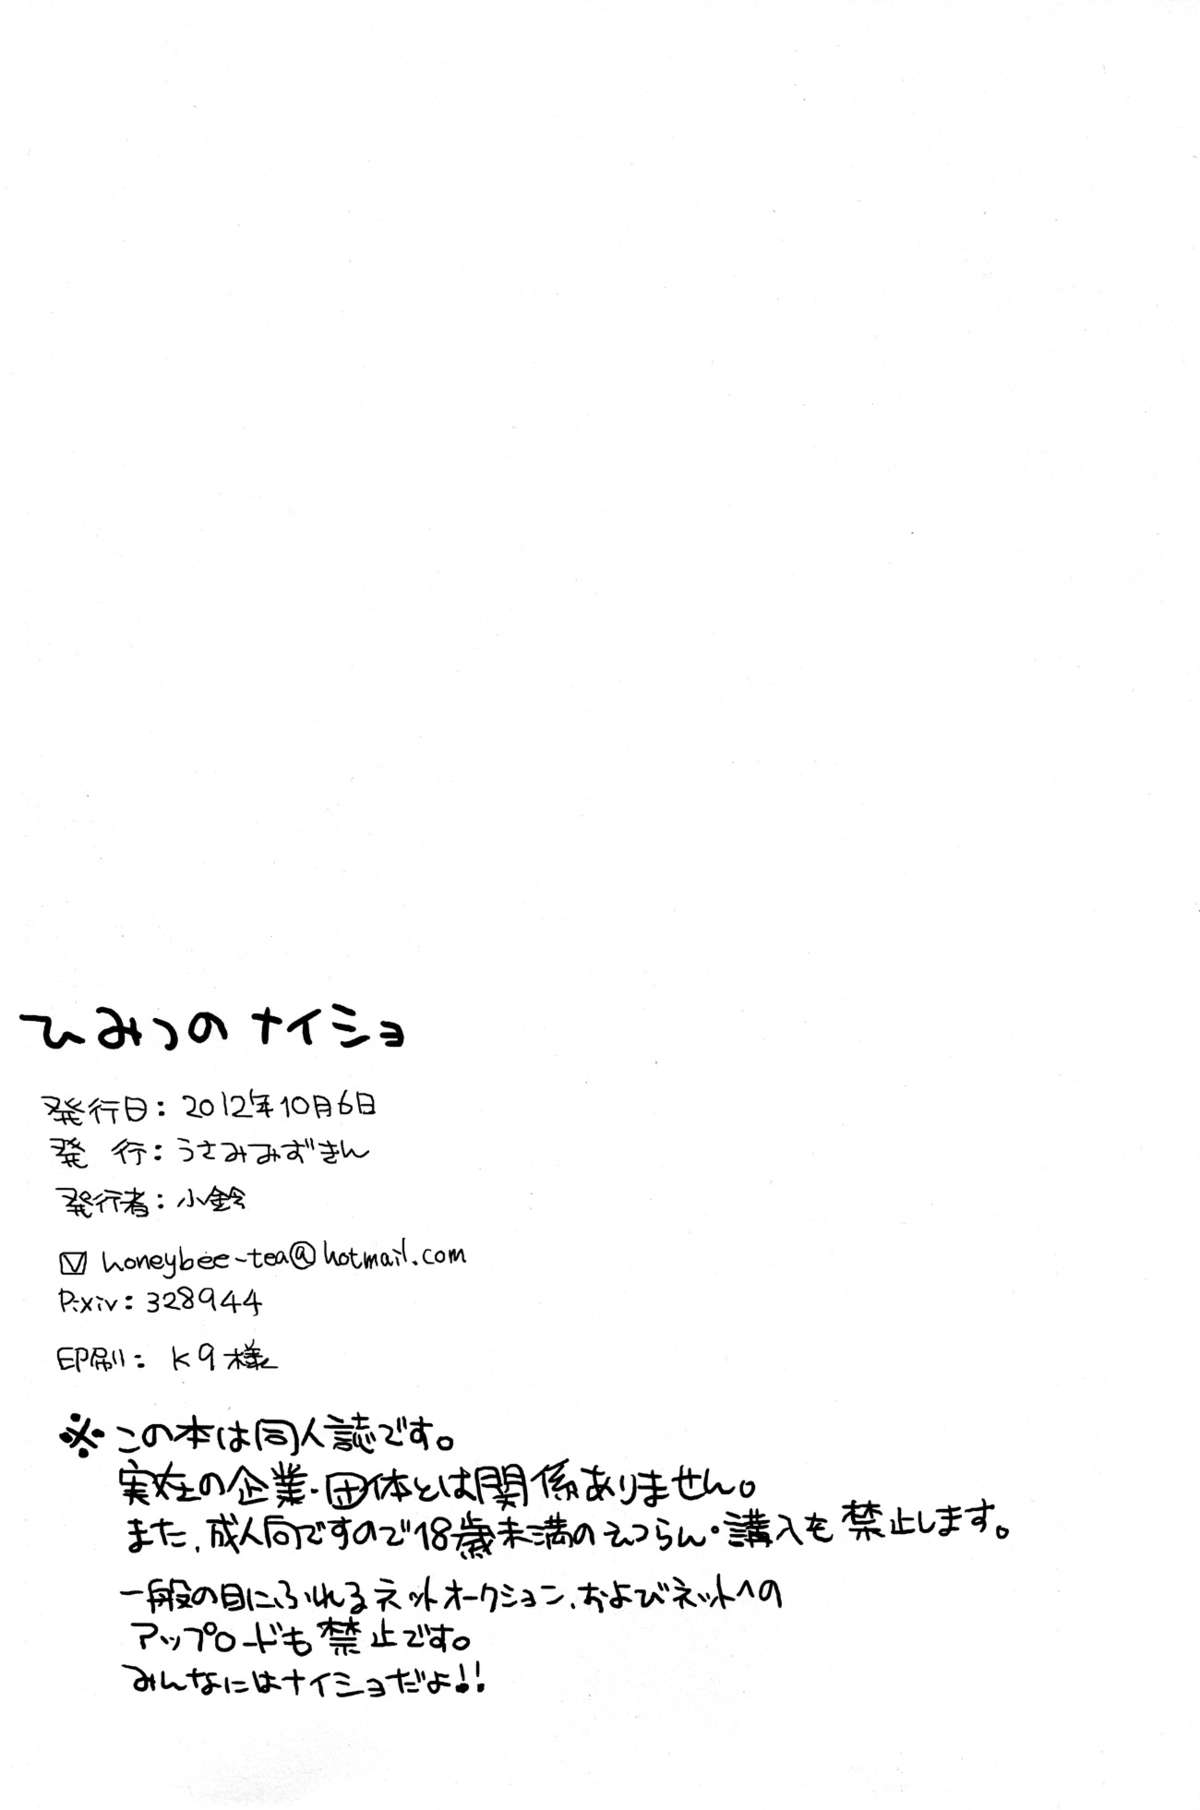 ひみつのナイショ
発行日：2012年10月6日
発 行：うさみみずきん
発行者：小鈴
honeybee-tea@hotmail.com
Pixiv：328944
印刷：K9様
※この本は同人誌です。
実在の企業・団体とは関係ありません。
また、成人向ですので18歳未満のえつらん・講入を禁止します。
一般の目にふれるネットオークション、およびネットへの
アップロードも禁止です。
みんなにはナイショだよ!!